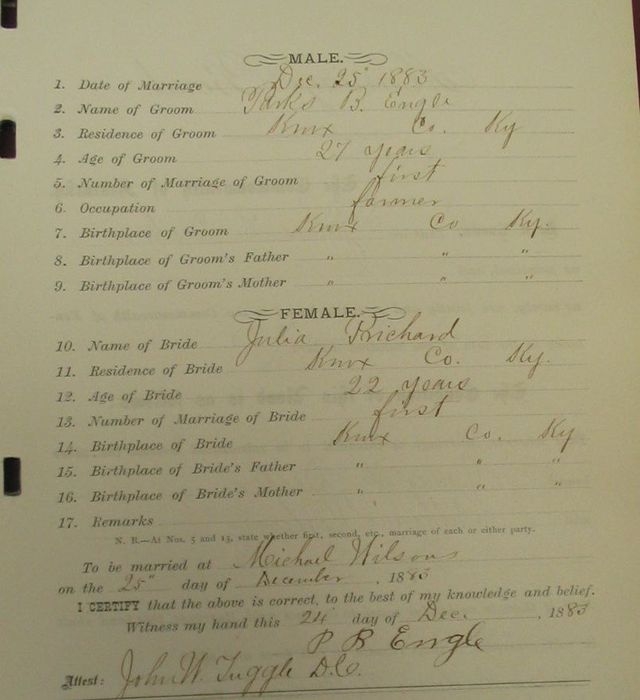 MALE.
1. Date of Marriage Dec. 25" 1883
2. Name of Groom Parks B. Engle
3. Residence of Groom Knox Co. Ky
4. Age of Groom 27 years
5. Number of Marriage of Groom first
6. Occupation farmer
7. Birthplace of Groom Knox Co Ky.
8. Birthplace of Groom's Father " " "
9. Birthplace of Groom's Mother " " "
FEMALE.
10. Name of Bride Julia Prichard
11. Residence of Bride Knox Co. Ky.
12. Age of Bride 22 years
13. Number of Marriage of Bride first
14. Birthplace of Bride Knox Co. Ky
15. Birthplace of Bride's Father " " "
16. Birthplace of Bride's Mother " " "
17. Remarks
N. B.—At Nos. 5 and 13, state whether first, second, etc., marriage of each or either party.
To be married at Michael Wilsons
on the 25" day of December , 1883
I CERTIFY that the above is correct, to the best of my knowledge and belief.
Witness my hand this 24" day of Dec. , 1883
P B Engle
Attest: John W. Tuggle D.C.